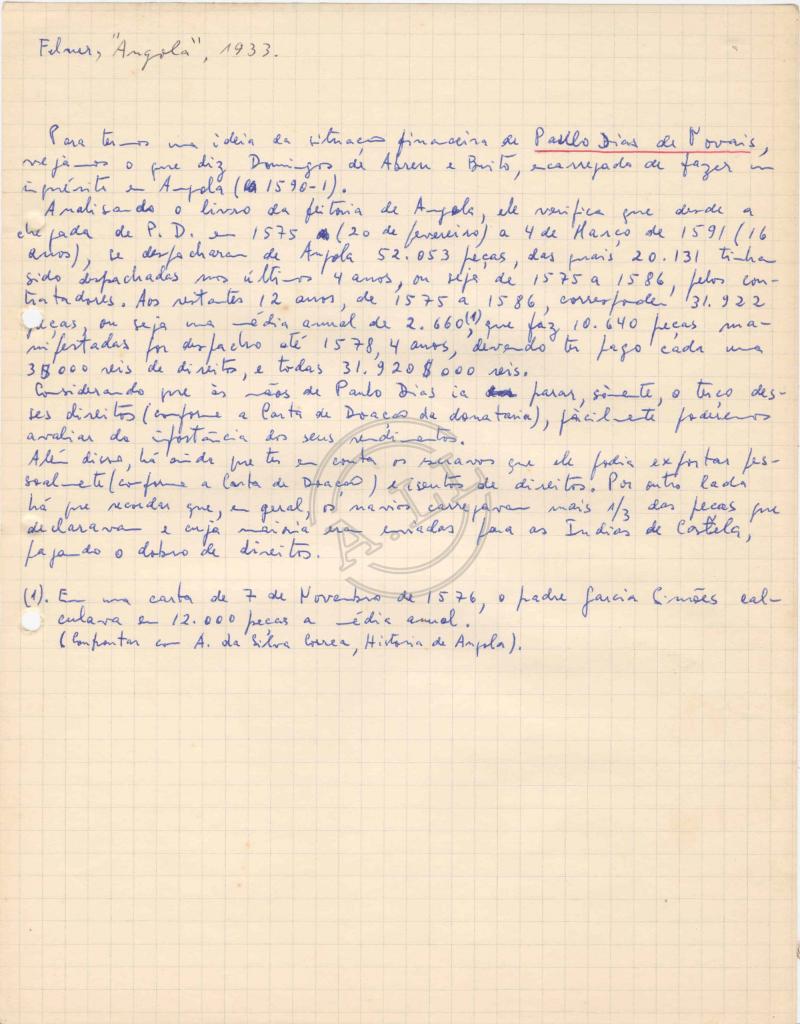 Felner, "Angola", 1933.
Para termos uma ideia da situação financeira de Paulo Dias de Novais,
vejamos o que diz Domingos de Abreu e Brito, encarregado de fazer um
inquérito em Angola (1590-1).
Analisando o livro da feitoria de Angola, ele verifica que desde a
chegada de P. D. em 1575 (20 de fevereiro) a 4 de Março de 1591 (16
anos), se despacharam de Angola 52.053 peças, das quais 20.131 tinham
sido despachadas nos últimos 4 anos, ou seja de 1575 a 1586, pelos con-
tratadores. Aos restantes 12 anos, de 1575 a 1586, corresponder 31.922
peças, ou seja uma média anual de 2.660(1), que faz 10.640 peças ma-
nifestadas por despacho até 1578, 4 anos, devendo ter pago cada uma
3$000 reis de direitos, e todas 31.920$000 reis.
Considerando que às mãos de Paulo Dias ia parar, sòmente, o terço des-
ses direitos (conforme a Carta de Doação da donataria), fàcilmente poderemos
avaliar da importância dos seus rendimentos.
Além disso, há ainda que ter em conta os escravos que ele podia exportar pes-
soalmente (conforme a Carta de Doação) e isentos de direitos. Por outro lado
há que recordar que, em geral, os navios carregavam mais 1/3 das peças que
declaravam e cuja maioria eram enviadas para as Indias de Castela,
pagando o dobro de direitos.
(1). Em uma carta de 7 de Novembro de 1576, o padre Garcia Simões cal-
culava em 12.000 peças a média anual.
(Confrontar com A. da Silva Correa, Historia de Angola).
A.L.